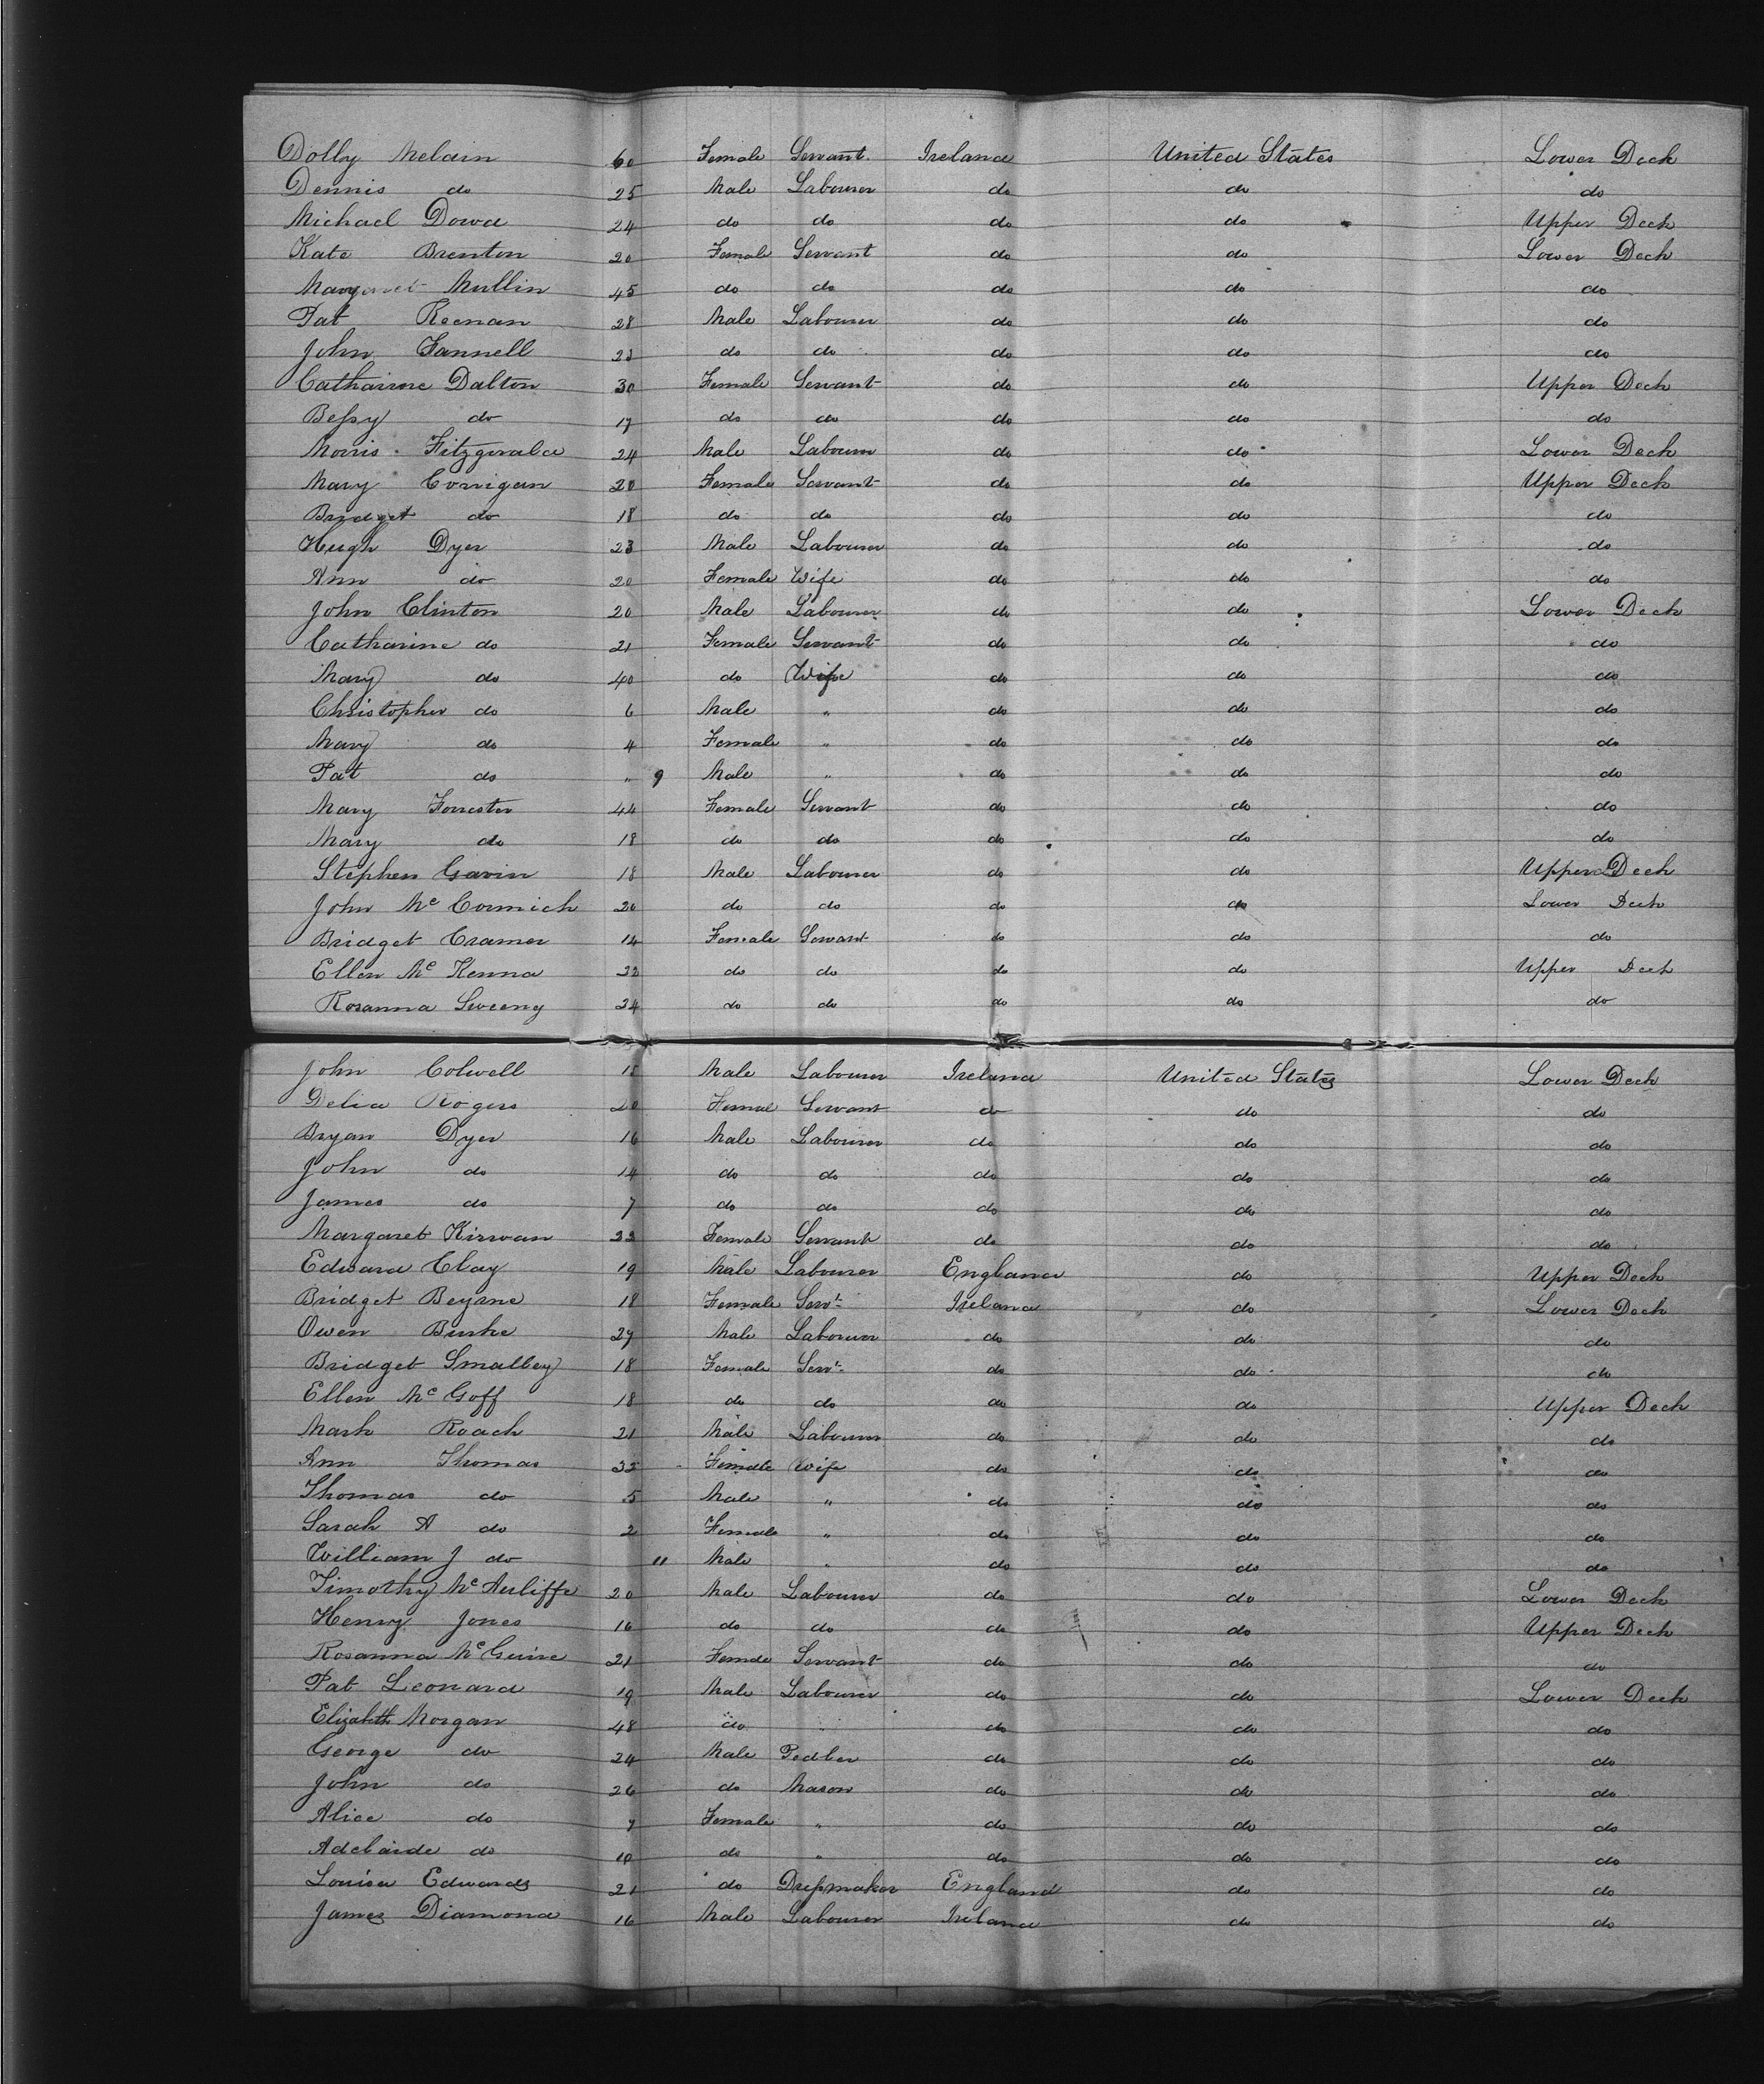 Dolly Melain 60 Female Servant Ireland United States Lower Deck
Dennis do 25 Male Labourer do do do
Michael Dowd 24 do do do do Upper Deck
Kate Brenton 20 Female Servant do do Lower Deck
Margaret Mullin 45 do do do do do
Pat Keenan 28 Male Labourer do do do
John Fannell 23 do do do do do
Catharine Dalton 30 Female Servant do do Upper Deck
Bessy do 17 do do do do do
Morris Fitzgerald 24 Male Labourer do do Lower Deck
Mary Corrigan 20 Female Servant do do Upper Deck
Bridget do 18 do do do do do
Hugh Dyer 23 Male Labourer do do do
Ann do 20 Female Wife do do do
John Clinton 20 Male Labourer do do Lower Deck
Catharine do 21 Female Servant do do do
Mary do 40 do Wife do do do
Christopher do 6 Male " do do do
Mary do 4 Female " do do do
Pat do " 9 Male " do do do
Mary Forrester 44 Female Servant do do do
Mary do 18 do do do do do
Stephen Gavin 18 Male Labourer do do Upper Deck
John Mc Cormick 20 do do do do Lower Deck
Bridget Cramer 14 Female Servant do do do
Ellen Mc Kenna 22 do do do do Upper Deck
Rosanna Sweeny 24 do do do do do
John Colwell 15 Male Labourer Ireland United States Lower Deck
Delia Rogers 20 Female Servant do do do
Bryan Dyer 16 Male Labourer do do do
John do 14 do do do do do
James do 7 do do do do do
Margaret Kirwan 22 Female Servant do do do
Edward Clay 19 Male Labourer England do Upper Deck
Bridget Beyrne 18 Female Servt Ireland do Lower Deck
Owen Burke 27 Male Labourer do do do
Bridget Smalley 18 Female Servt do do do
Ellen Mc Goff 18 do do do do Upper Deck
Mark Roach 21 Male Labourer do do do
Ann Thomas 35 Female Wife do do do
Thomas do 5 Male " do do do
Sarah A do 2 Female " do do do
William J do 11 Male " do do do
Timothy Mc Auliffe 20 Male Labourer do do Lower Deck
Henry Jones 16 do do do do Upper Deck
Rosanna Mc Guire 21 Female Servant do do do
Pat Leonard 19 Male Labourer do do Lower Deck
Elizabeth Morgan 48 do " do do do
George do 24 Male Pedler do do do
John do 26 do Mason do do do
Alice do 7 Female " do do do
Adelaide do 10 do " do do do
Louisa Edwards 21 do Dressmaker England do do
James Diamond 16 Male Labourer Ireland do do